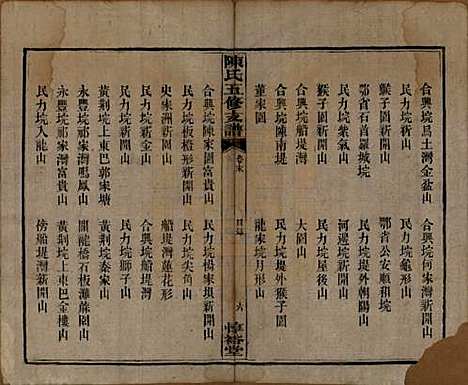 合興垸烏土灣金盆山
合興垸何家灣新開山
民力垸新山
民力垸龜形山
鄂省石首羅城垸
鄂省公安順和垸
猴子園新開山
民力垸堤外朝陽山
猴子園新開山
河邊垸新開山
民力垸紫氣山
民力垸屋後山
合興垸船堤灣
大園山
合興垸陳南堤
民力垸堤外猴子園
董家園
龍家垸月形山
陳氏五修支譜
卷末
目錄
六
惇裕堂
合興垸陳家園富貴山
合興垸楊家垻新開山
民力垸板橙形新開山
民力垸新開山
史家洲新園山
船堤灣蓮花形
民力垸新金山
合興垸船堤灣
民力垸新開山
民力垸獅子山
黃荊垸上東巴郭家塘
黃荊垸秦家山
永豐垸祁家灣鳴鳳山
關龍橋石板灘蘇園山
永豐垸祁家灣富貴山
黃荊垸上東巴金樓山
民力垸人龍山
傍船堤灣新開山